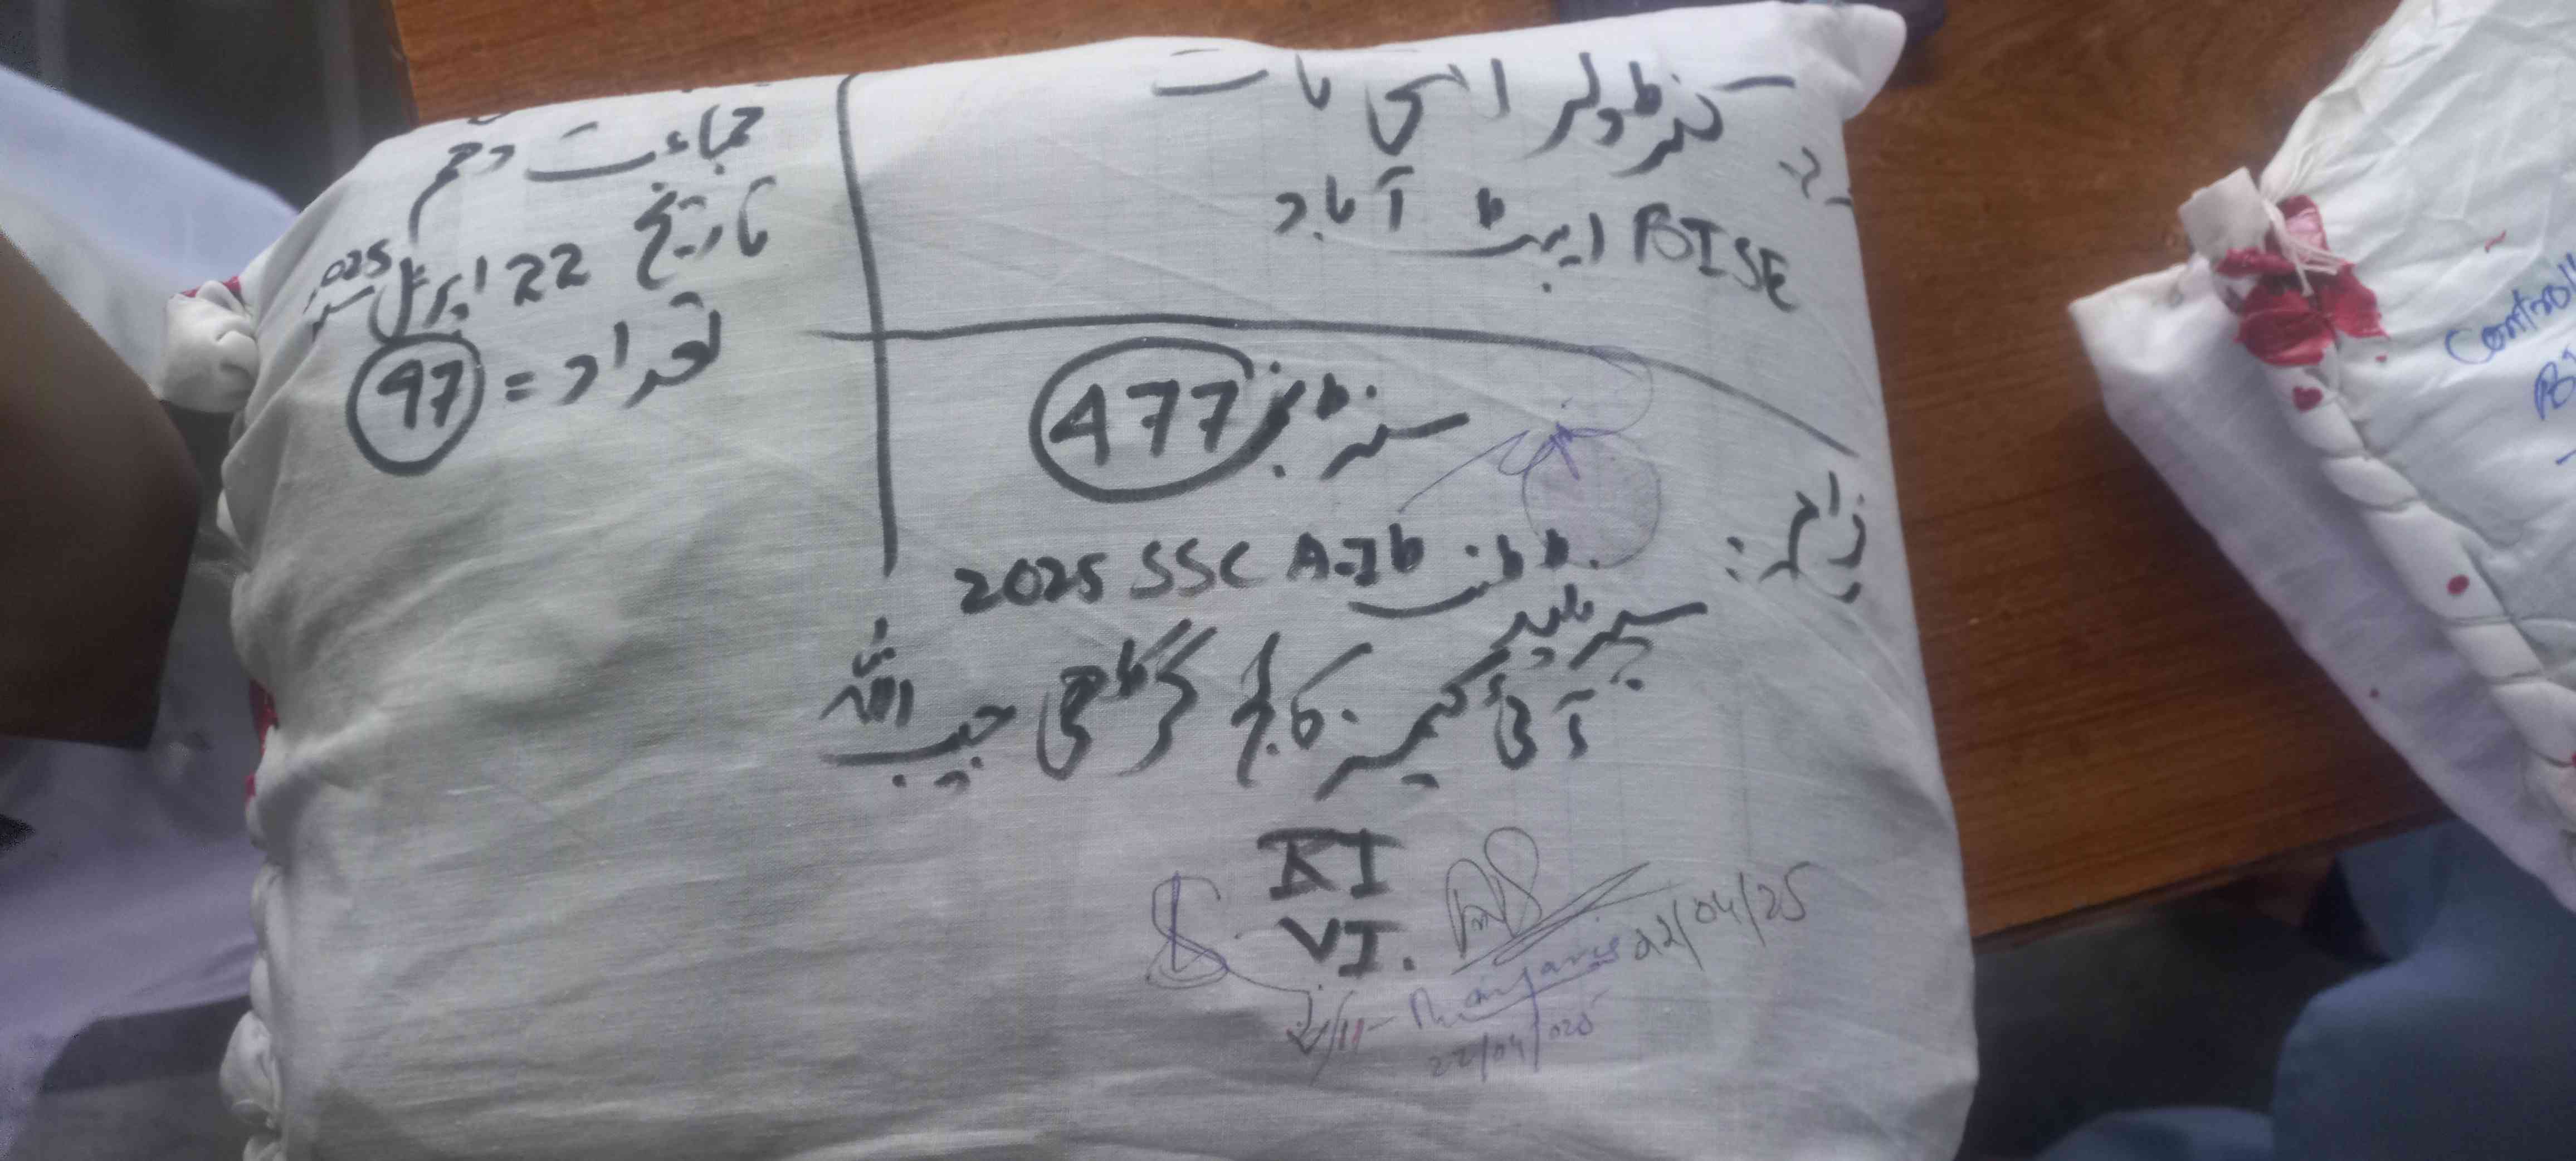 کنٹرولر امتحانات
BISE ایبٹ آباد
جماعت دہم
تاریخ 22 اپریل 2025
تعداد = 97
سنٹر نمبر 477
از طرف:
سپرنٹنڈنٹ 2025 SSC A-I
آئی کیئر کالج گڑھی حبیب اللہ
RI
VI.
22/04/25
22/04/025